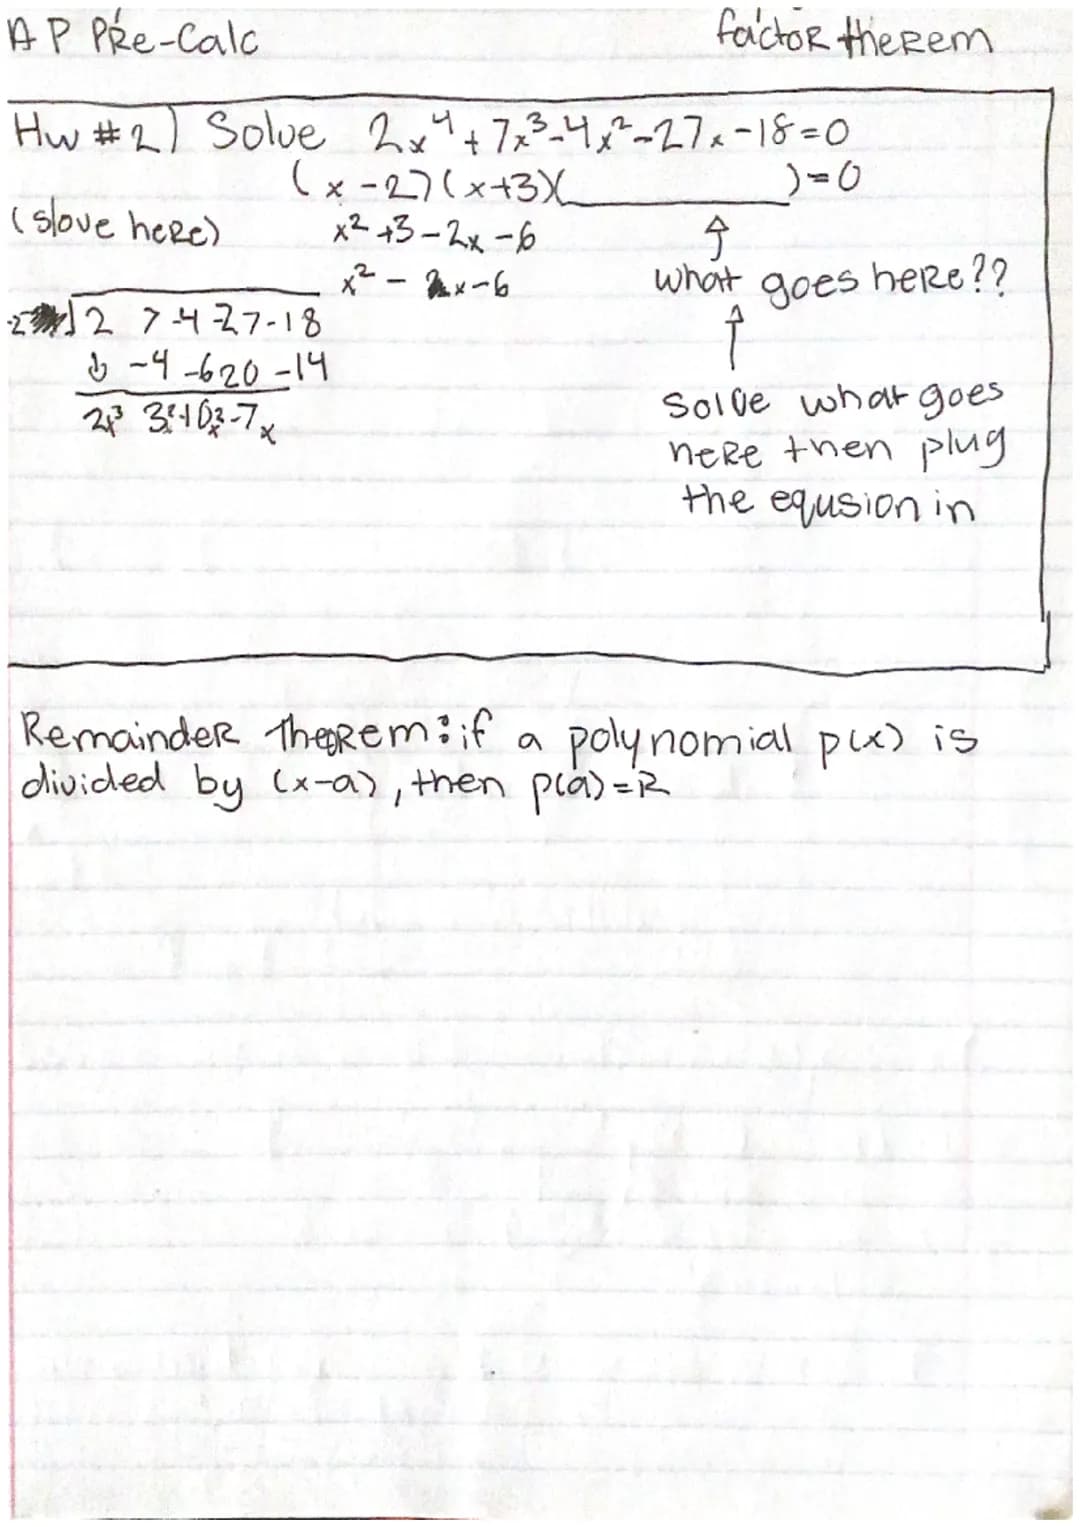 AP Pre-Calc
factor therem
Hw #2) Solve 2x⁴+7x³-4x²-27x-18=0
(x-2)(x+3)(________)=0
(slove here)
x²+3-2x-6
x² - x-6
what goes here??
-2 2 7-4-27-18
↓ -4 -6 20 -14
2x³ 3x²-10x²-7x
Solve what goes
here then plug
the equsion in
Remainder theorem: if a polynomial p(x) is
divided by (x-a), then p(a)=R